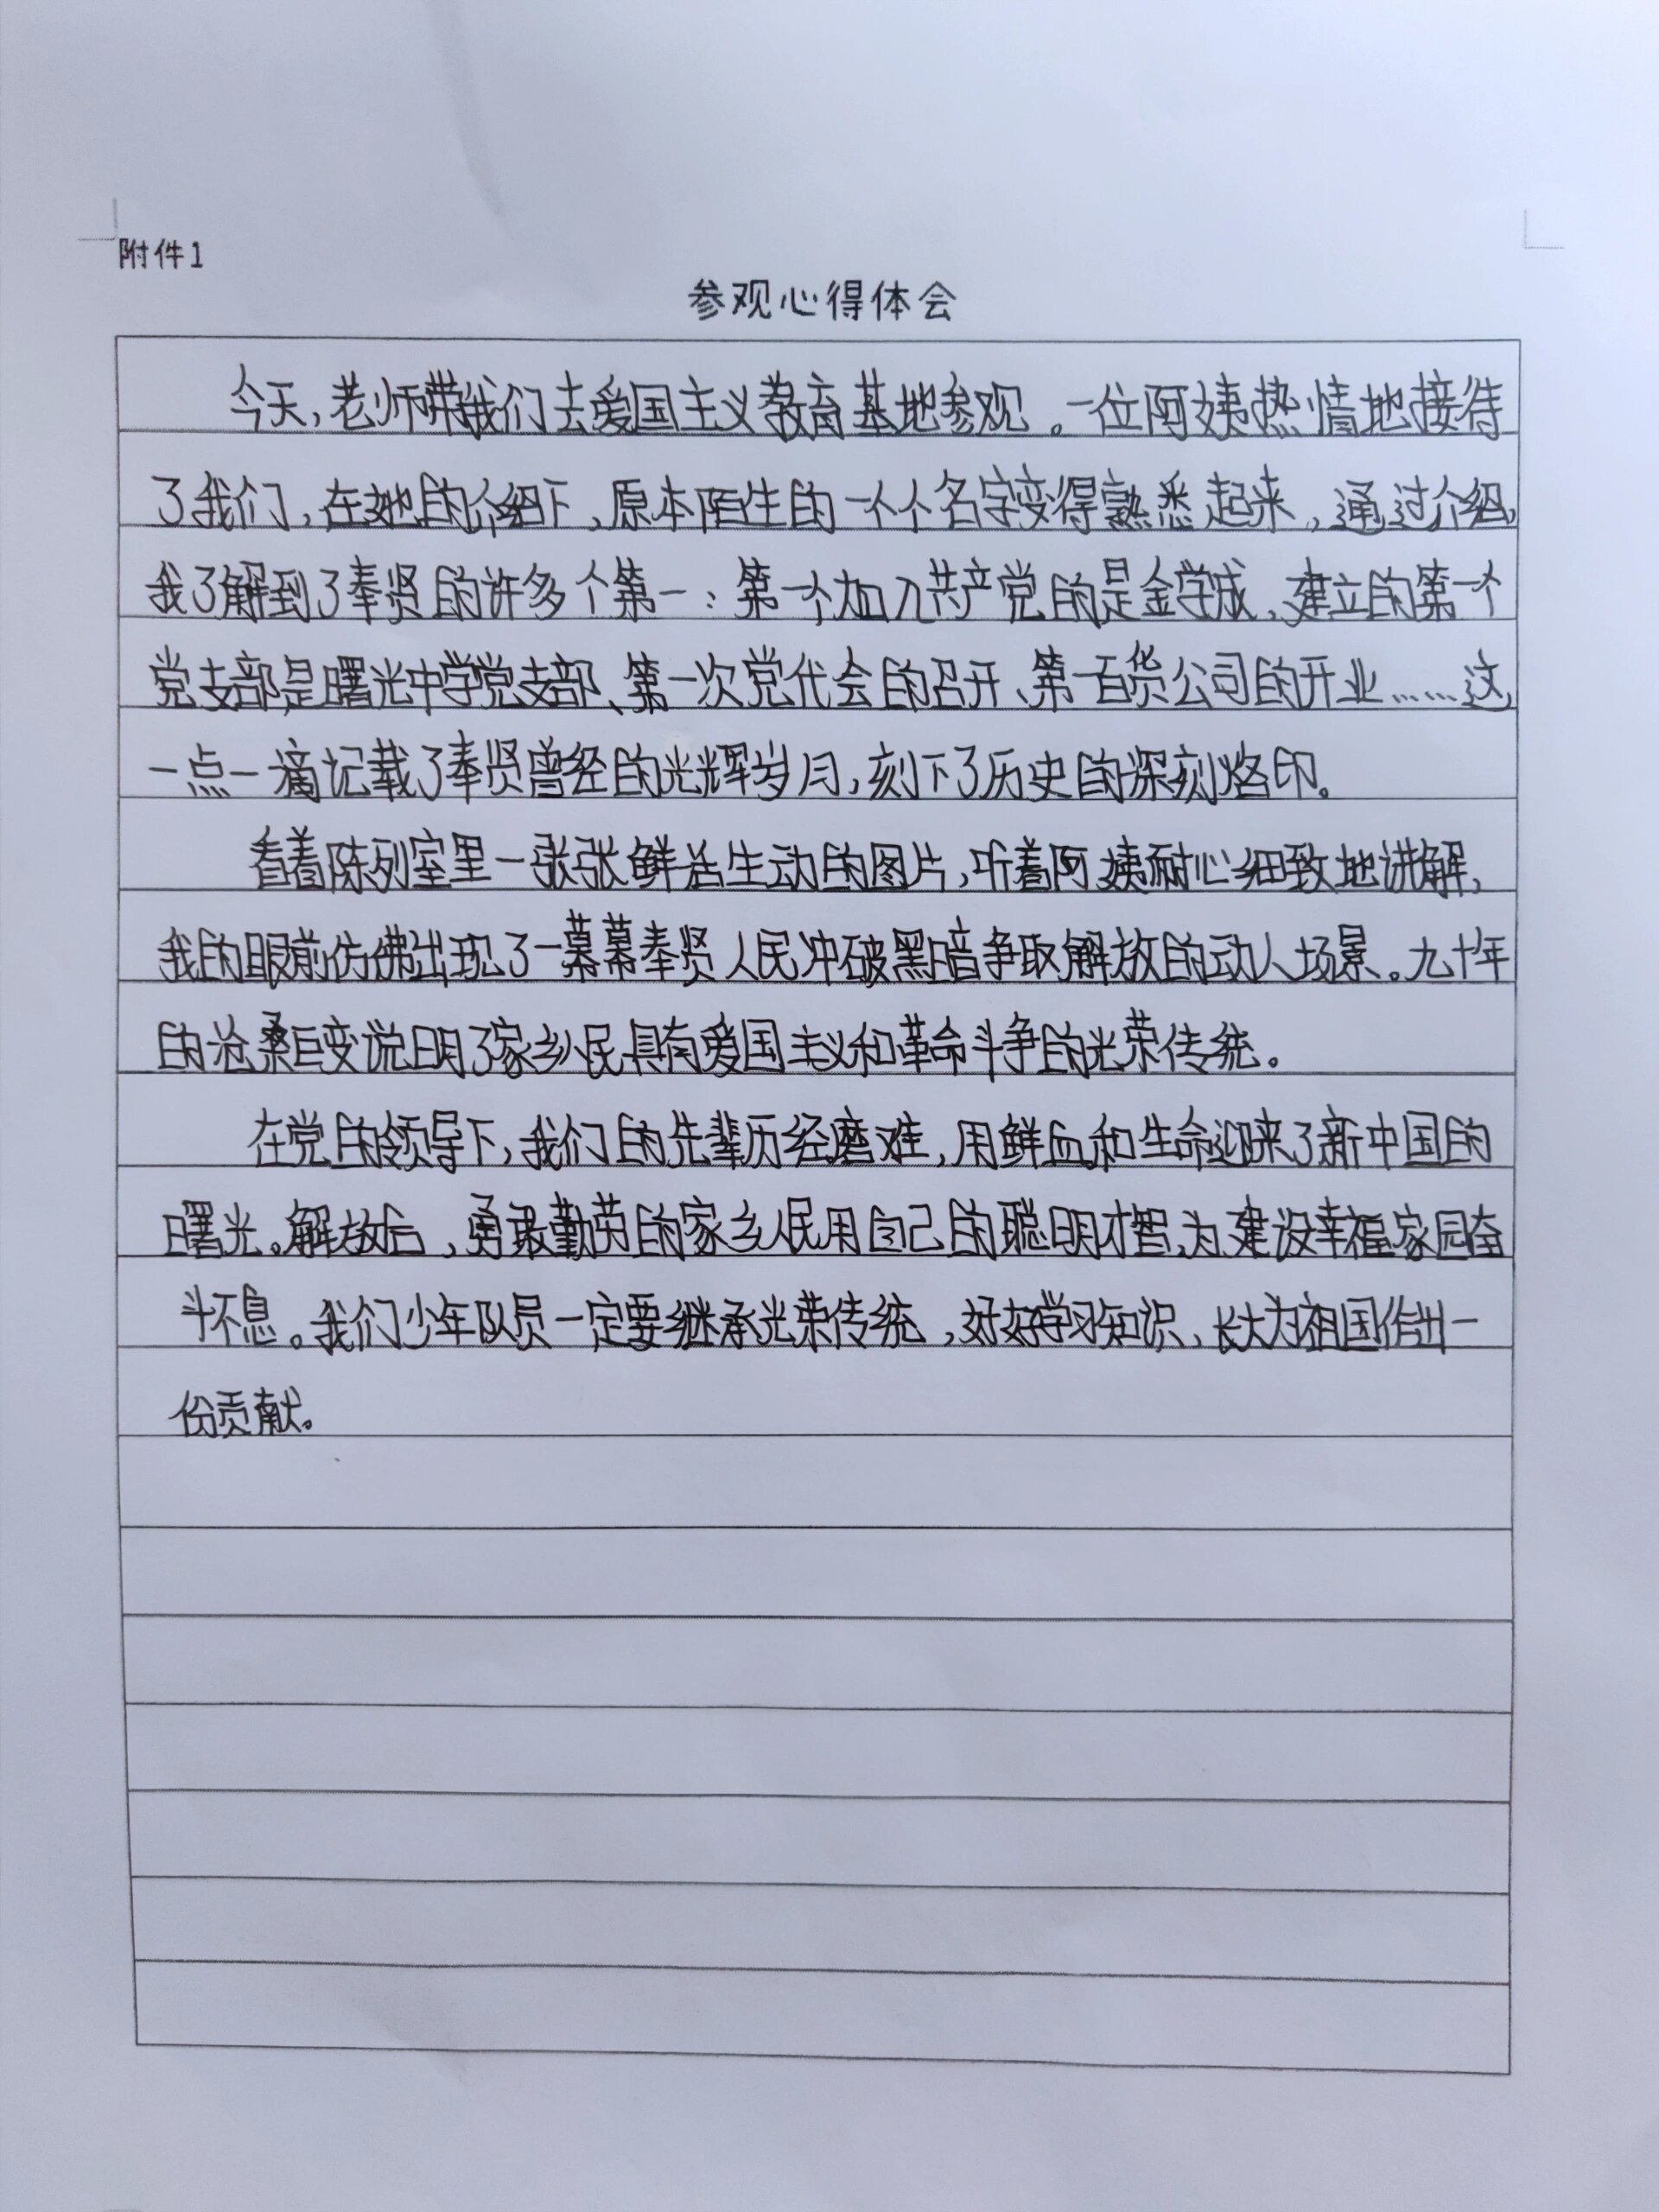 附件1
参观心得体会
今天,老师带我们去爱国主义教育基地参观。一位阿姨热情地接待
了我们,在她的介绍下,原本陌生的一个个名字变得熟悉起来,通过介绍,
我了解到了奉贤的许多个第一:第一个加入共产党的是金学成、建立的第一个
党支部是曙光中学党支部、第一次党代会的召开、第一百货公司的开业……这
一点一滴记载了奉贤曾经的光辉岁月,刻下了历史的深刻烙印。
看着陈列室里一张张鲜活生动的图片,听着阿姨耐心细致地讲解,
我的眼前仿佛出现了一幕幕奉贤人民冲破黑暗争取解放的动人场景。九十年
的沧桑巨变说明了家乡人民具有爱国主义和革命斗争的光荣传统。
在党的领导下,我们的先辈历经磨难,用鲜血和生命迎来了新中国的
曙光。解放后,勇敢勤劳的家乡人民用自己的聪明才智,为建设幸福家园奋
斗不息。我们少年队员一定要继承光荣传统,好好学习知识,长大为祖国作出一
份贡献。